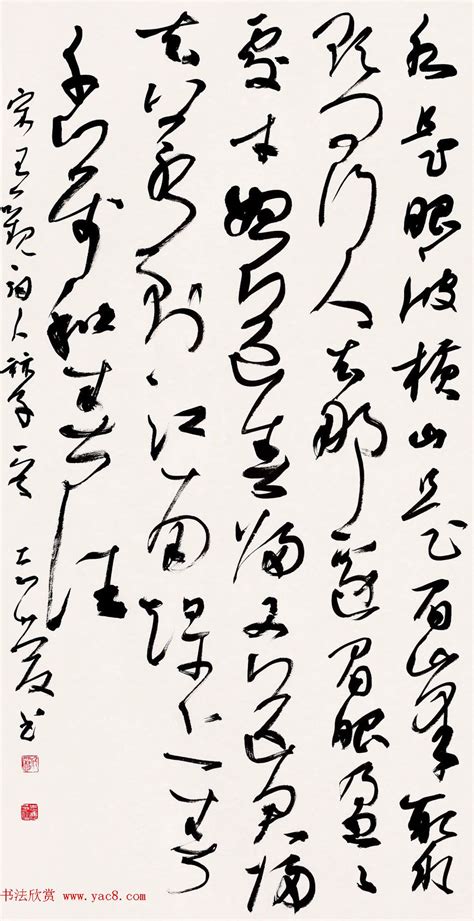 水是眼波横山是眉峯聚
欲问行人去那边眉眼盈盈
处才始送春归又送君归
去若到江南赶上春
千万和春住
宋王观词卜算子
书
书法欣赏 www.yac8.com